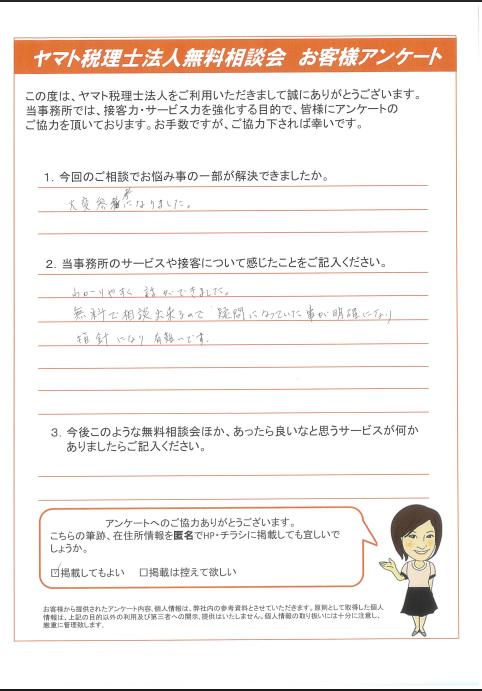 ヤマト税理士法人無料相談会 お客様アンケート
この度は、ヤマト税理士法人をご利用いただきまして誠にありがとうございます。
当事務所では、接客力・サービス力を強化する目的で、皆様にアンケートの
ご協力を頂いております。お手数ですが、ご協力下されば幸いです。
1．今回のご相談でお悩み事の一部が解決できましたか。
大変参考になりました。
2．当事務所のサービスや接客について感じたことをご記入ください。
わかりやすく 話ができました。
無料で相談出来るので 疑問になっていた事が明確になり
指針になり 有難いです。
3．今後このような無料相談会ほか、あったら良いなと思うサービスが何か
ありましたらご記入ください。
アンケートへのご協力ありがとうございます。
こちらの筆跡、在住所情報を匿名でHP・チラシに掲載しても宜しいで
しょうか。
☑掲載してもよい ☐掲載は控えて欲しい
お客様から提供されたアンケート内容、個人情報は、弊社内の参考資料とさせていただきます。原則として取得した個人
情報は、上記の目的以外の利用及び第三者への開示、提供はいたしません。個人情報の取り扱いには十分に注意し、
厳重に管理致します。